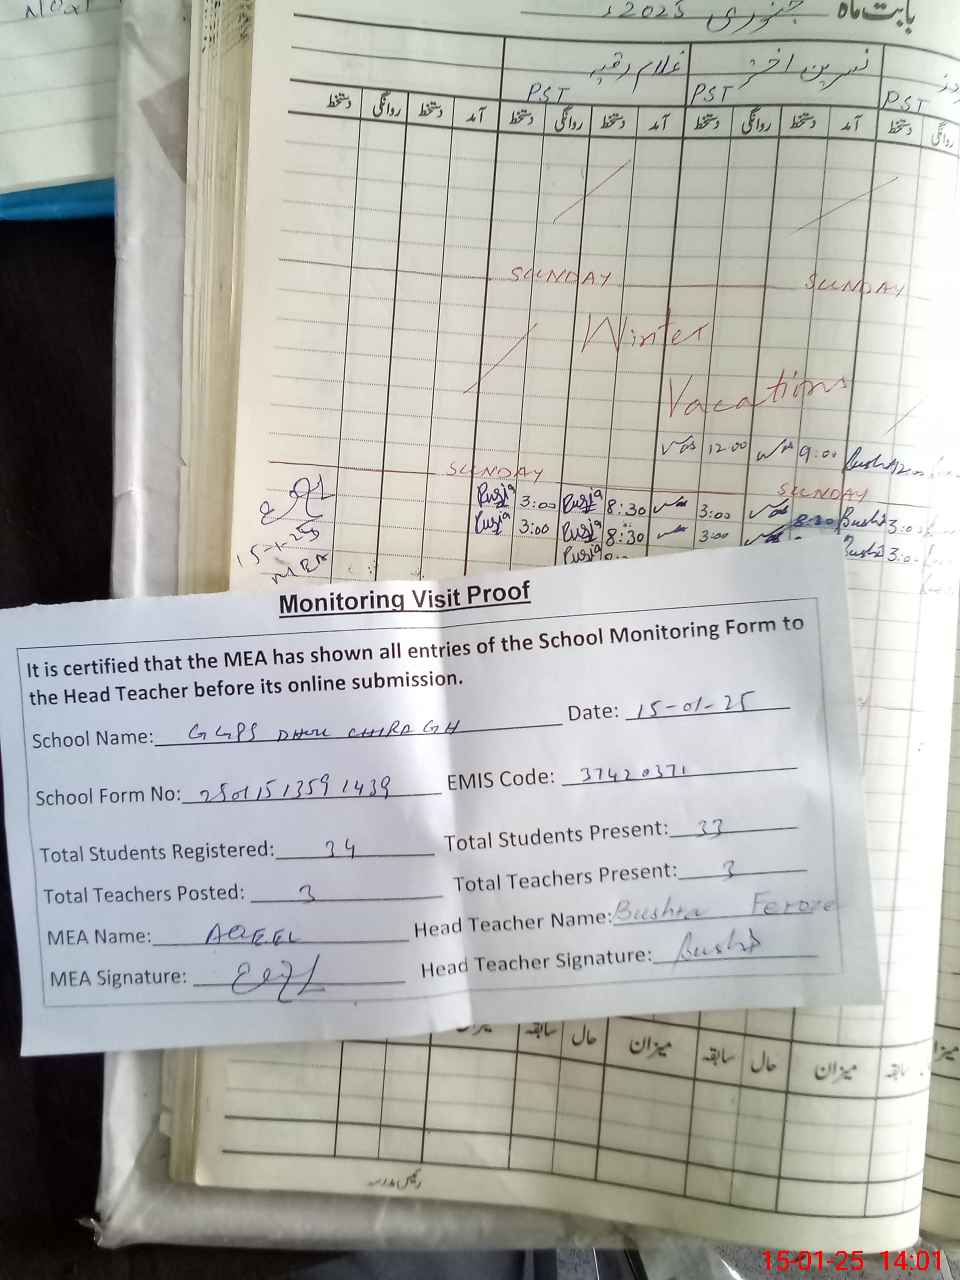 بابت ماہ جنوری 2025
غلام رقیہ نسرین اختر
PST PST PST
دستخط روانگی دستخط آمد دستخط روانگی دستخط آمد دستخط روانگی دستخط آمد دستخط روانگی
SUNDAY SUNDAY
Winter
Vacations
12:00 9:00
SUNDAY SUNDAY
3:00 8:30 3:00 8:30 3:00
3:00 8:30 3:00
3:00
15-1-25
MEA
Monitoring Visit Proof
It is certified that the MEA has shown all entries of the School Monitoring Form to
the Head Teacher before its online submission.
School Name: GGPS DHOK CHIRAGH Date: 15-01-25
School Form No: 25011513591439 EMIS Code: 37420371
Total Students Registered: 34 Total Students Present: 33
Total Teachers Posted: 3 Total Teachers Present: 3
MEA Name: AQEEL Head Teacher Name: Bushra Feroze
MEA Signature: Head Teacher Signature: Bushra
میزان سابقہ حال میزان سابقہ حال میزان سابقہ
رئیس مدرسہ
15-01-25 14:01